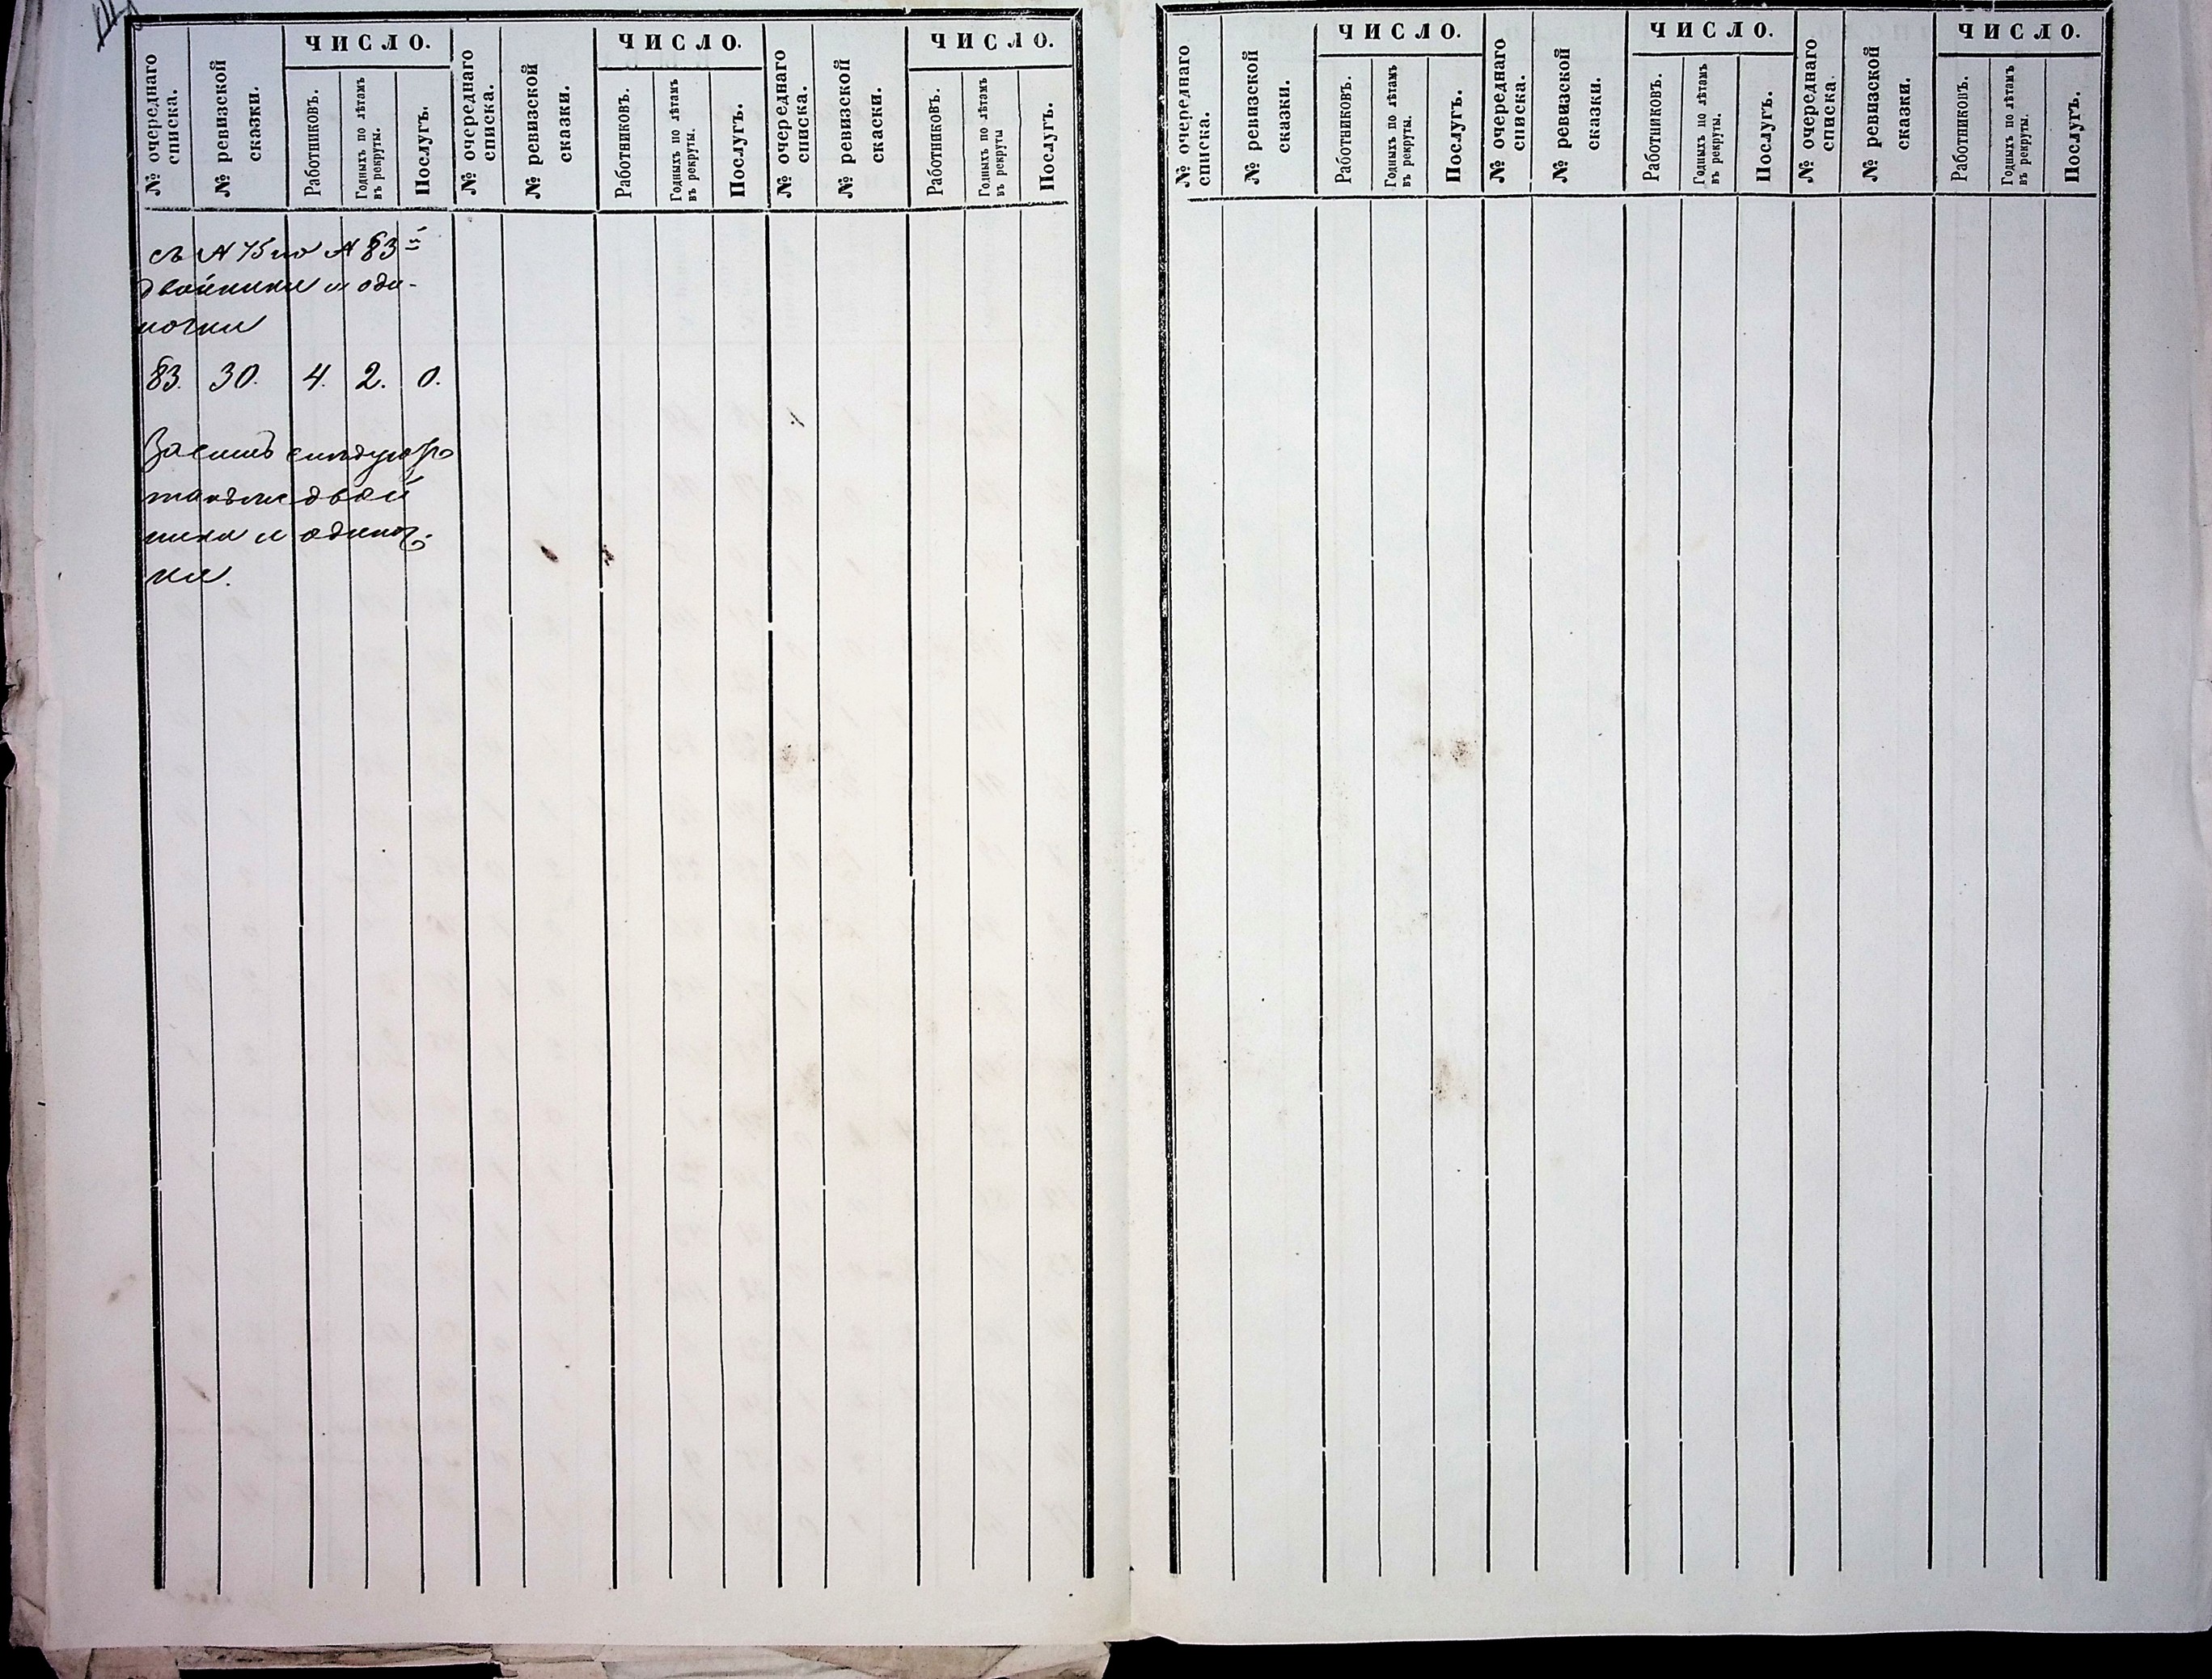 ЧИСЛО. ЧИСЛО. ЧИСЛО.
№ очереднаго списка. № ревизской сказки. Работниковъ. Годныхъ по лѣтамъ въ рекруты. Послугъ. № очереднаго списка. № ревизской сказки. Работниковъ. Годныхъ по лѣтамъ въ рекруты. Послугъ. № очереднаго списка. № ревизской скаски. Работниковъ. Годныхъ по лѣтамъ въ рекруты Послугъ.
съ № 75 по № 83й
двойники и оди-
ночки
83. 30. 4. 2. 0.
Засимъ слѣдуютъ
такъже двой
ники и одиноч-
ки.
ЧИСЛО. ЧИСЛО. ЧИСЛО.
№ очереднаго списка. № ревизской сказки. Работниковъ. Годныхъ по лѣтамъ въ рекруты. Послугъ. № очереднаго списка. № ревизской сказки. Работниковъ. Годныхъ по лѣтамъ въ рекруты. Послугъ. № очереднаго списка № ревизской сказки. Работниковъ. Годныхъ по лѣтамъ въ рекруты. Послугъ.